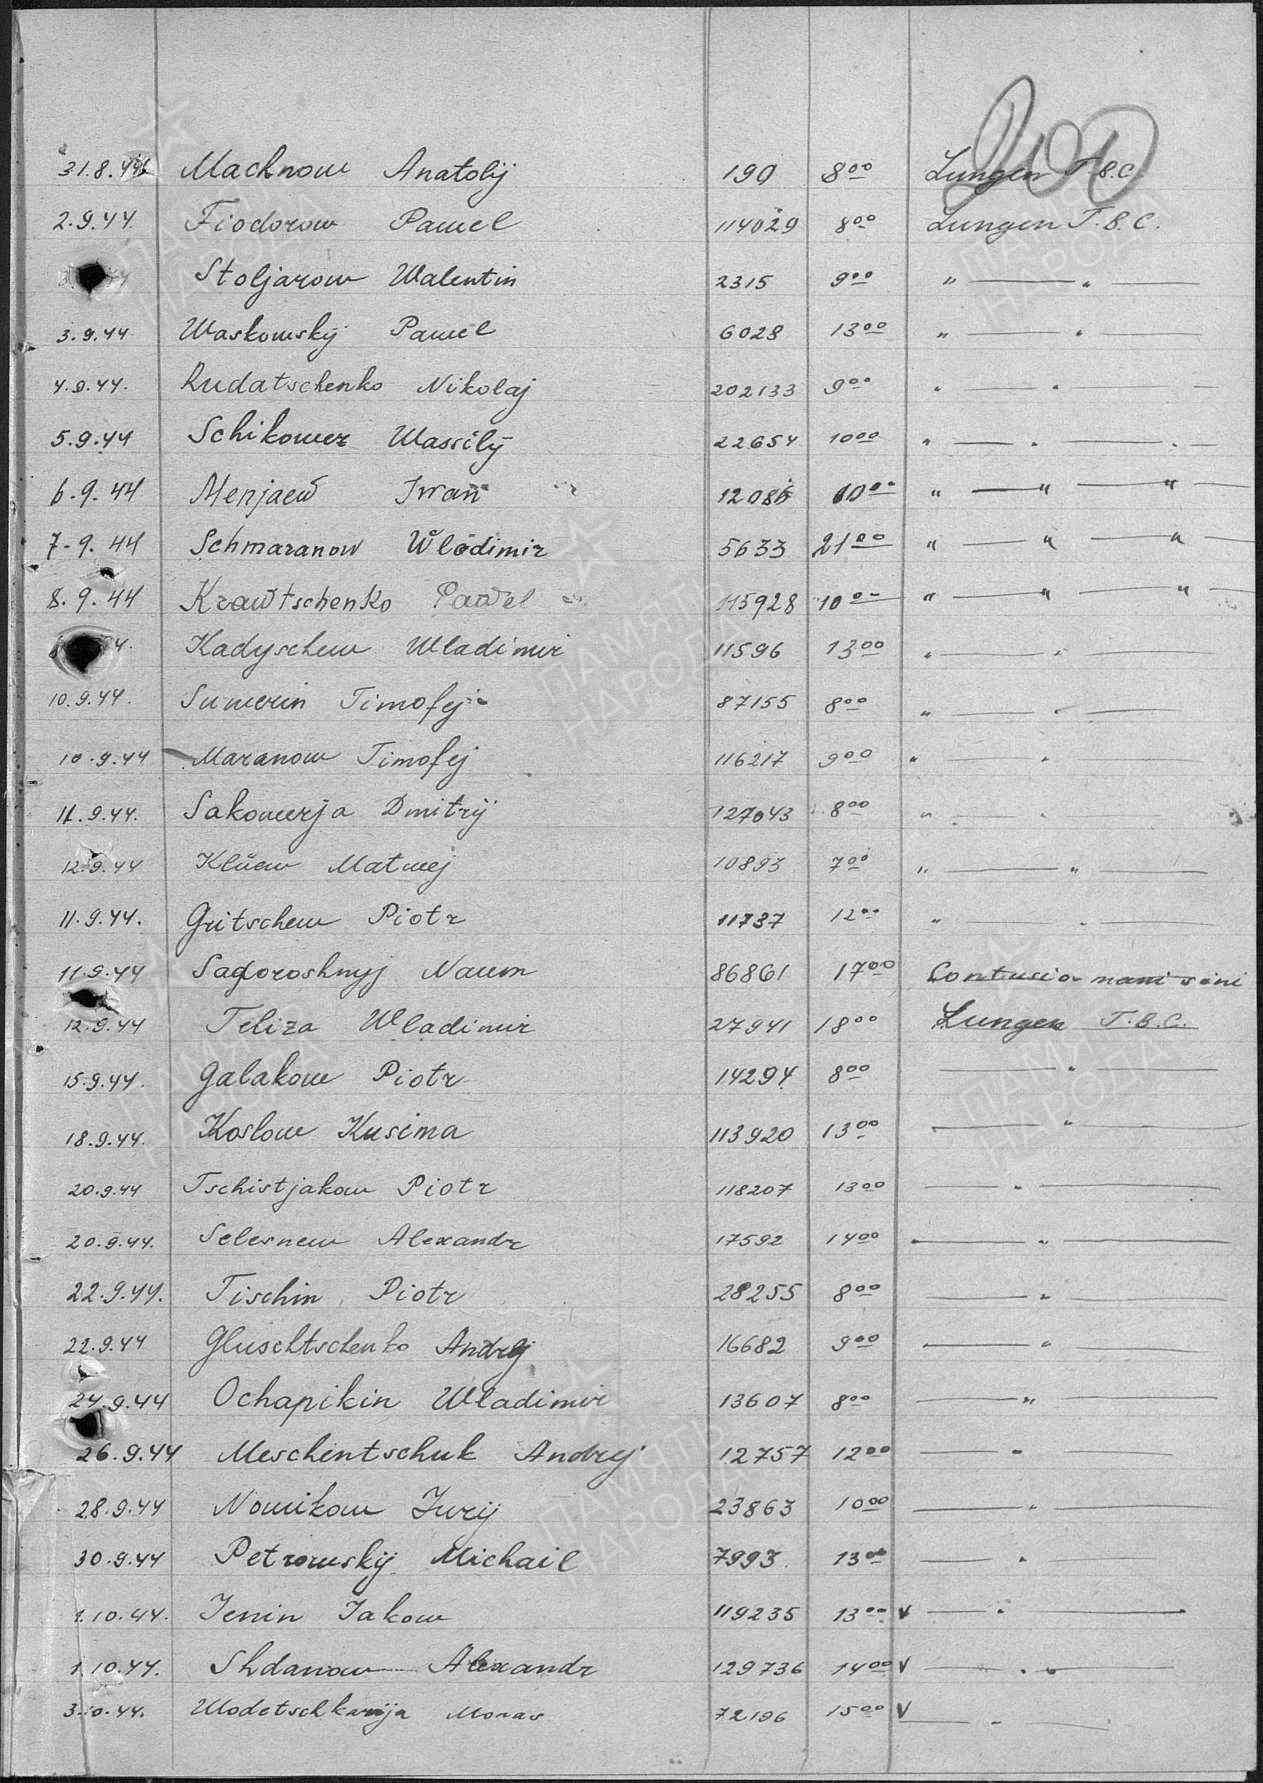 200
31.8.44 Machnow Anatolij 190 8⁰⁰ Lungen T.B.C.
2.9.44. Fiodorow Pawel 114029 8⁰⁰ Lungen T.B.C.
Stoljarow Walentin 2315 9⁰⁰ " — " —
3.9.44 Waskowskij Pawel 6028 13⁰⁰ " — "
4.9.44. Rudatschenko Nikolaj 202133 9⁰⁰ " "
5.9.44 Schikower Wassilij 22654 10⁰⁰ " — " — "
6.9.44 Menjaew Iwan 12086 10⁰⁰ " — " — " —
7.9.44 Schmaranow Wlodimir 5633 21⁰⁰ " — " — " —
8.9.44 Krawtschenko Pawel 115928 10⁰⁰ " — " — "
Kadyschew Wladimir 11596 13⁰⁰ " — " —
10.9.44. Suwerin Timofej 87155 8⁰⁰ " — " —
10.9.44 Maranow Timofej 116217 9⁰⁰ " — "
11.9.44. Sakowerja Dmitrij 127043 8⁰⁰ " — "
12.9.44 Klüew Matwej 10893 7⁰⁰ " — " —
11.9.44. Gritschew Piotr 11737 12⁰⁰ " — " —
11.9.44 Saporoshnyj Naum 86861 17⁰⁰ Contusio mani sini
12.9.44 Teliza Wladimir 27941 18⁰⁰ Lungen T.B.C.
15.9.44. Galakow Piotr 14294 8⁰⁰ — " —
18.9.44. Koslow Kusima 113920 13⁰⁰ — " —
20.9.44 Tschistjakow Piotr 118207 13⁰⁰ — " —
20.9.44. Selesnew Alexandr 17592 14⁰⁰ — " —
22.9.44. Tischin Piotr 28255 8⁰⁰ — " —
22.9.44 Gluschtschenko Andrej 16682 9⁰⁰ — " —
24.9.44 Ochapikin Wladimir 13607 8⁰⁰ — " —
26.9.44 Meschentschuk Andrej 12757 12⁰⁰ — " —
28.9.44 Nowikow Jurij 23863 10⁰⁰ — " —
30.9.44 Petrowskij Michail 7993 13⁰⁰ — " —
1.10.44. Jenin Jakow 119235 13⁰⁰ v — " —
1.10.44. Shdanow Alexandr 129736 14⁰⁰ v — " —
3.10.44. 72196 15⁰⁰ v — " —
ПАМЯТЬ НАРОДА